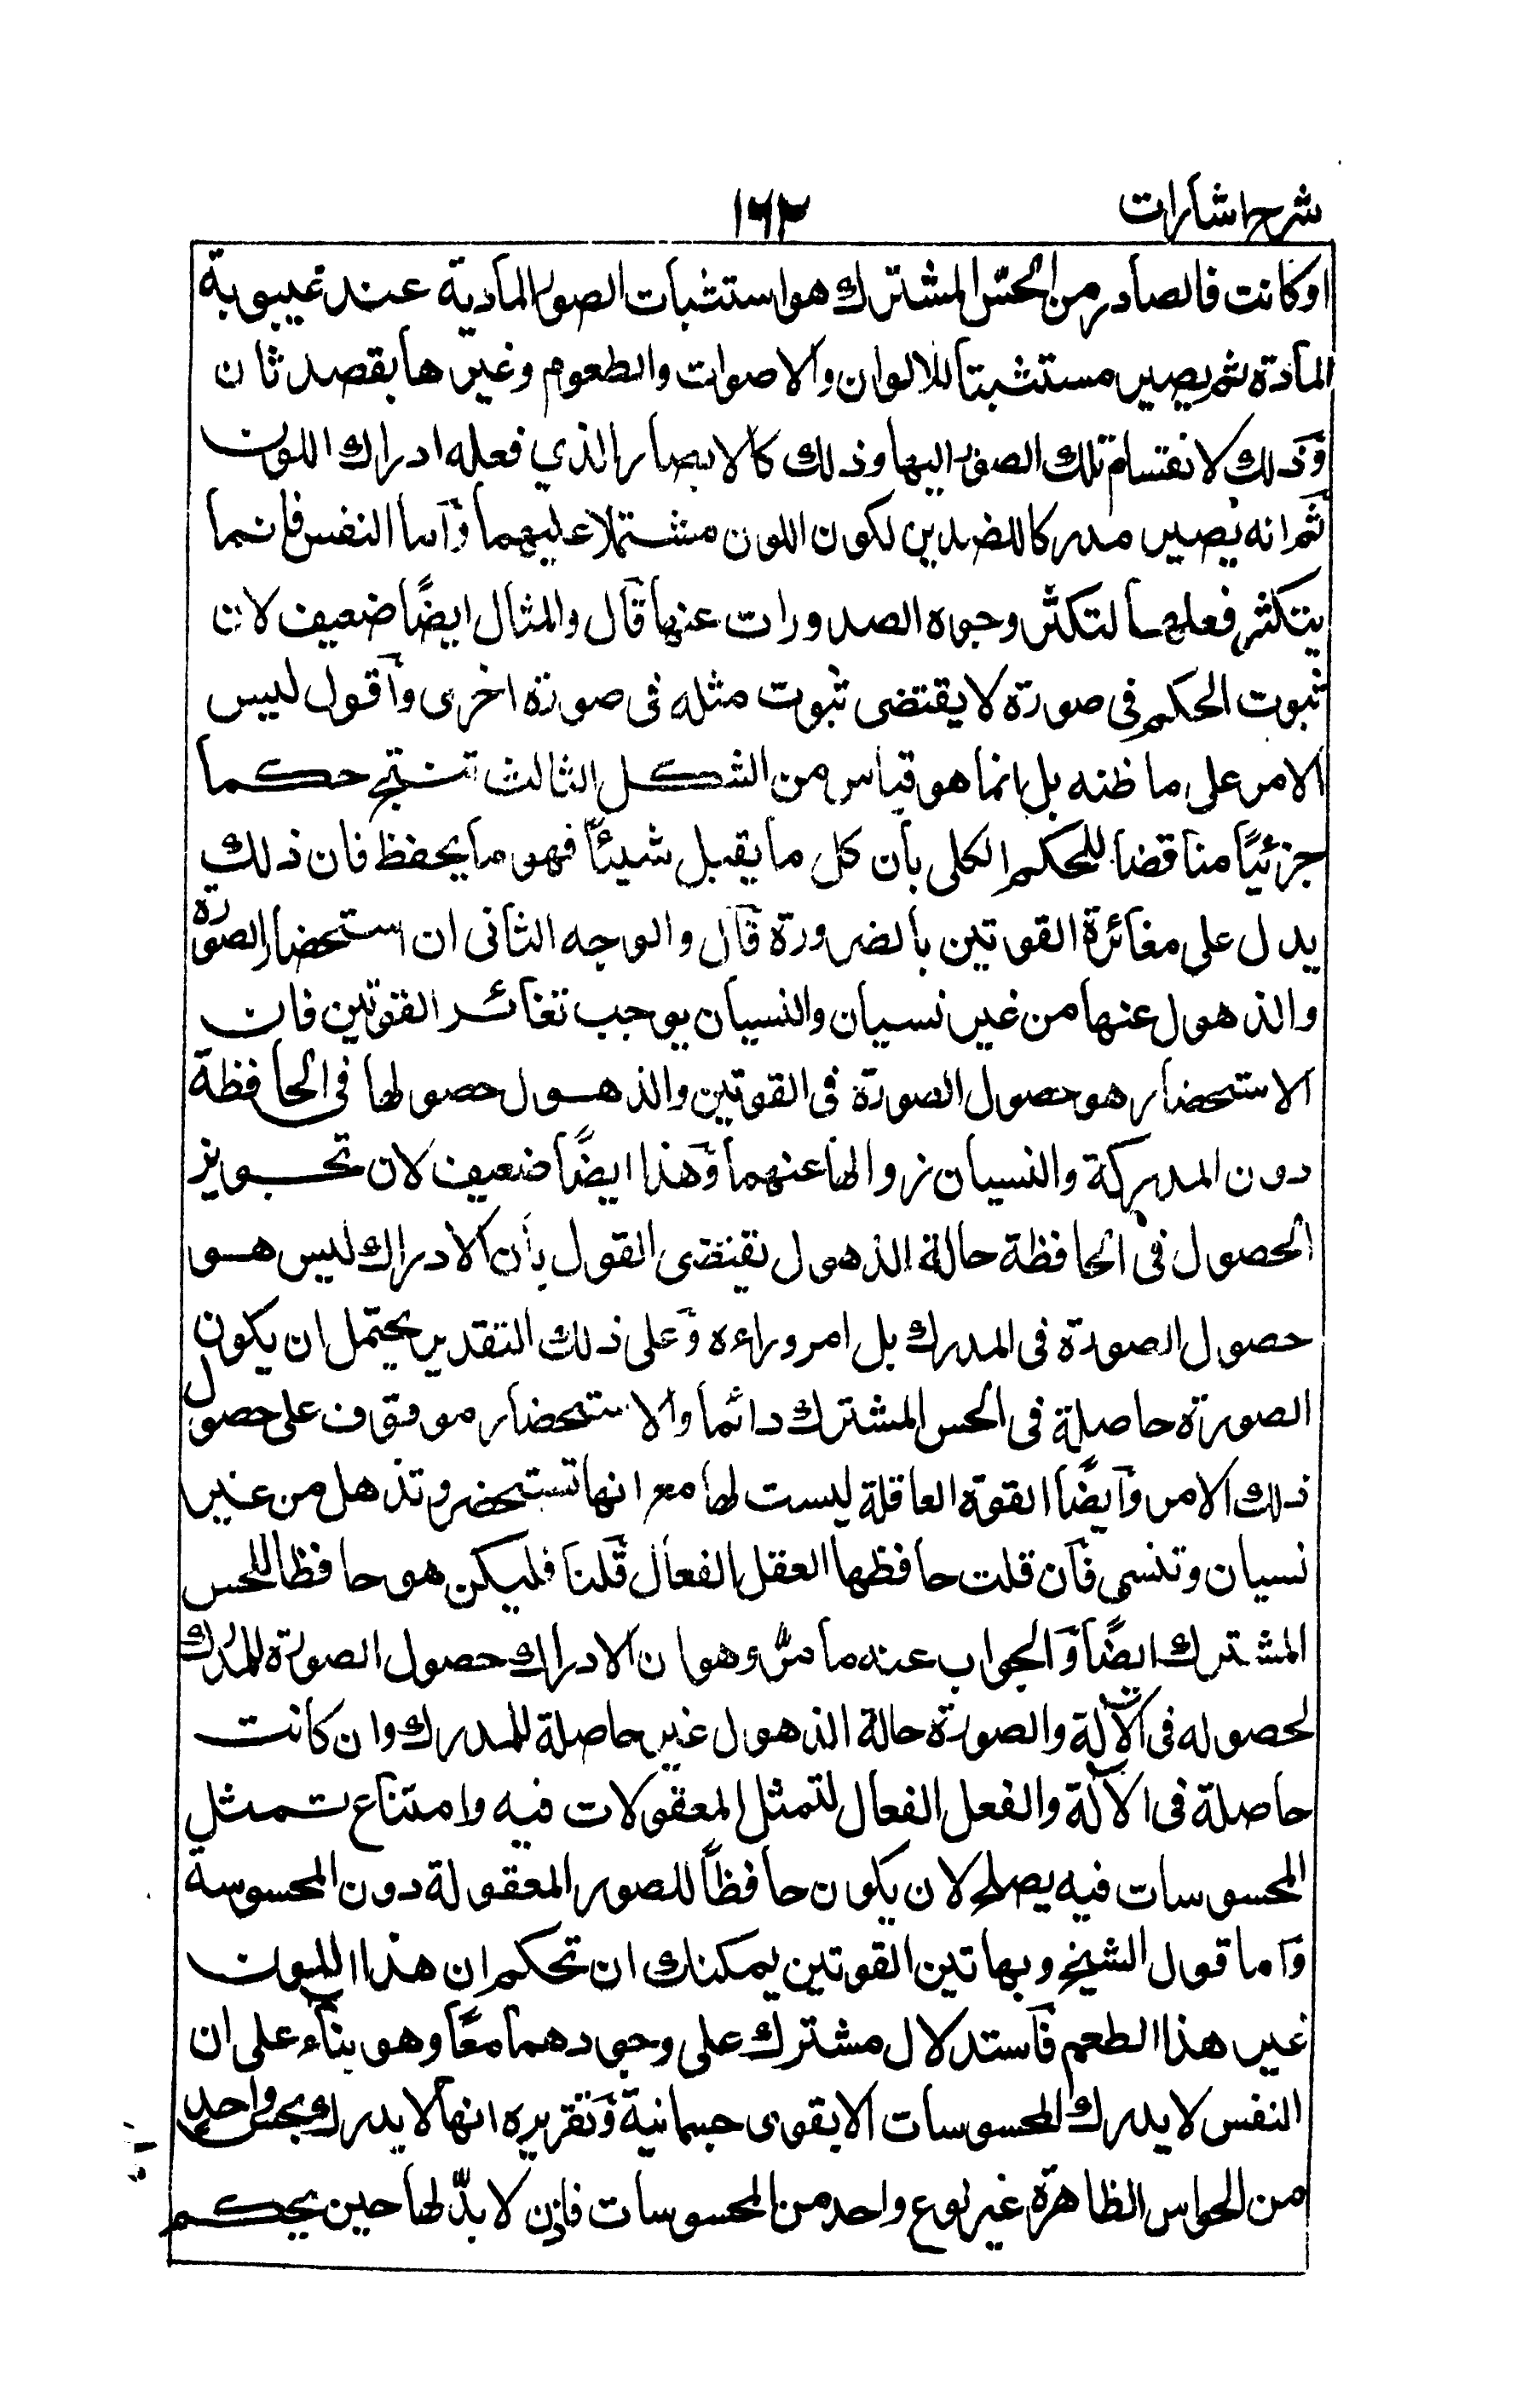 شرح اشارات ١٦٢
او كانت فالصادر من الحسّ المشترك هو استثبات الصور المادية عند غيبوبة
المادة ثم يصير مستثبتا للالوان والاصوات والطعوم وغيرها بقصد ثان
وذلك لانقسام تلك الصور اليها وذلك كالابصار الذي فعله ادراك اللون
ثم انه يصير مدركا للضدين لكون اللون مشتملا عليهما وآما النفس فانما
يتكثر فعلها لتكثّر وجوه الصدورات عنها قال والمثال ايضًا ضعيف لان
ثبوت الحكم فى صورة لا يقتضى ثبوت مثله فى صورة اخرى وآقول ليس
الامر على ما ظنه بل انما هو قياس من الشكل الثالث تنتج حكما
جزئيًا مناقضا للحكم الكلى بأن كل ما يقبل شيئًا فهو ما يحفظ فان ذلك
يدل على مغائرة القوتين بالضرورة قآل والوجه الثانى ان استحضار الصورة
والذهول عنها من غير نسيان والنسيان يوجب تغائر القوتين فان
الاستحضار هو حصول الصورة فى القوتين والذهول حصولها فى الحافظة
دون المدركة والنسيان زوالها عنهما وهذا ايضًا ضعيف لان تجويز
الحصول فى الحافظة حالة الذهول يقتضى القول بأن الادراك ليس هو
حصول الصورة فى المدرك بل امر وراءه وعلى ذلك التقدير يحتمل ان يكون
الصورة حاصلة فى الحس المشترك دائما والاستحضار موقوف على حصول
ذلك الامر وآيضًا القوة العاقلة ليست لها مع انها تستحضر وتذهل من غير
نسيان وتنسى فآن قلت حافظها العقل الفعال قلنا فليكن هو حافظا للحس
المشترك ايضًا وآلجواب عنه ما مرّ وهو ان الادراك حصول الصورة للمدرك
لحصوله فى الآلة والصورة حالة الذهول غير حاصلة للمدرك وان كانت
حاصلة فى الآلة والفعل الفعال لتمثل المعقولات فيه وامتناع تمثل
المحسوسات فيه يصلح لان يكون حافظًا للصور المعقولة دون المحسوسة
وآما قول الشيخ وبهاتين القوتين يمكنك ان تحكم ان هذا اللون
غير هذا الطعم فآستدلال مشترك على وجودهما معًا وهو بناء على ان
النفس لا يدرك المحسوسات الا بقوى جسمانية وتقريره انها لا يدرك بحس واحد
من الحواس الظاهرة غير نوع واحد من المحسوسات فاذن لا بدّ لها حين يحكم